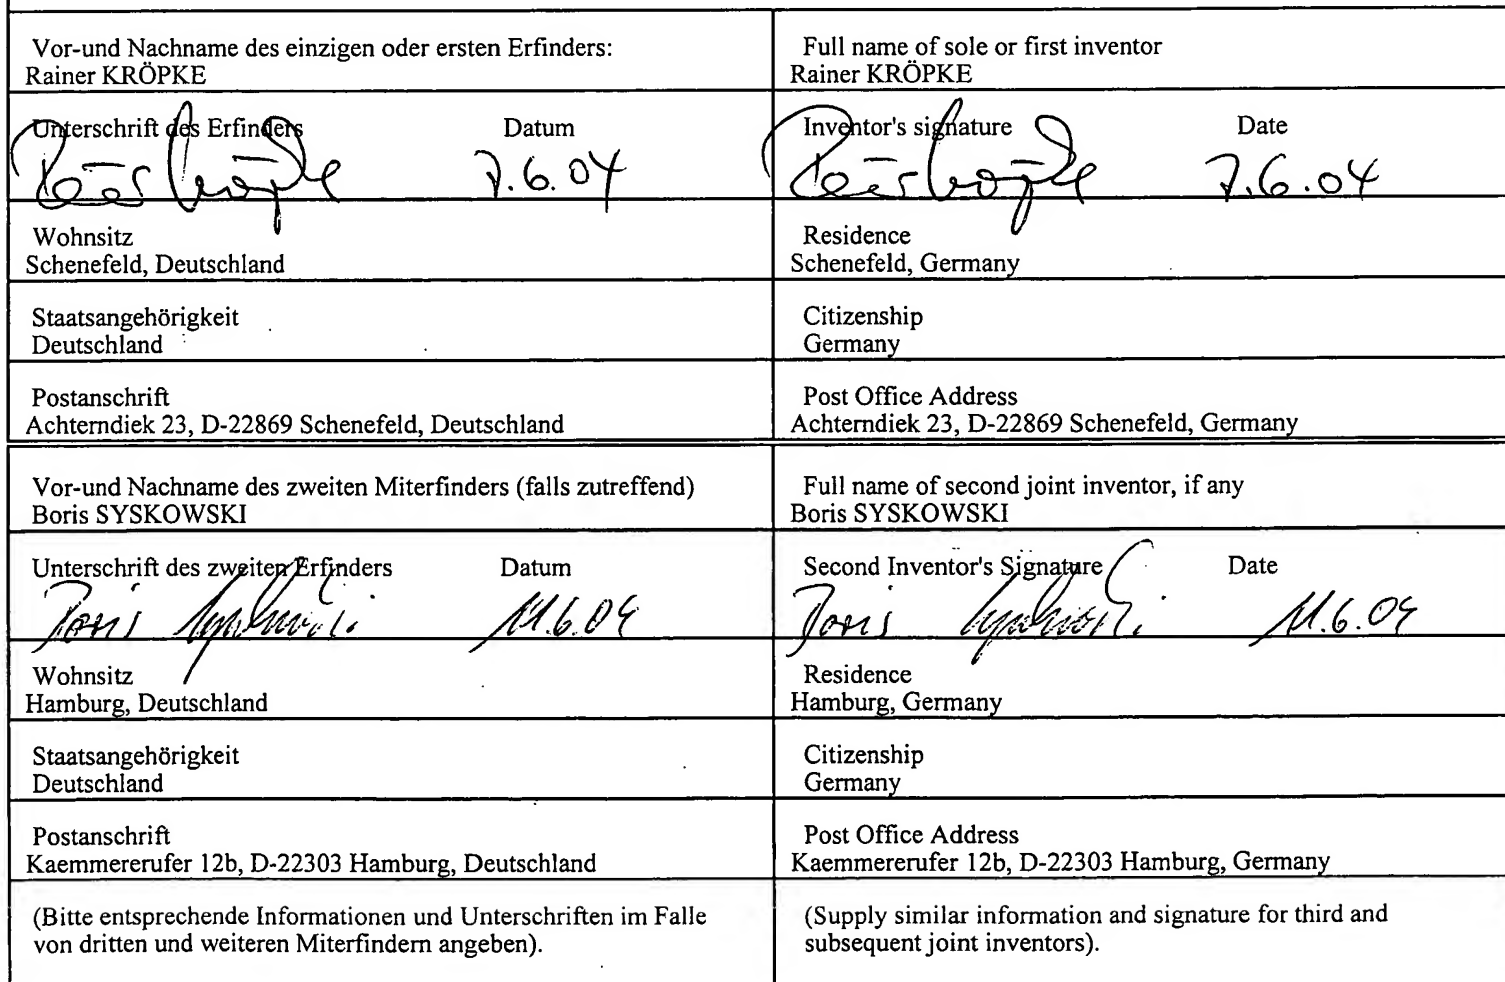 Vor-und Nachname des einzigen oder ersten Erfinders:
Rainer KRÖPKE
Full name of sole or first inventor
Rainer KRÖPKE
Unterschrift des Erfinders Datum
7.6.04
Inventor's signature Date
7.6.04
Wohnsitz
Schenefeld, Deutschland
Residence
Schenefeld, Germany
Staatsangehörigkeit
Deutschland
Citizenship
Germany
Postanschrift
Achterndiek 23, D-22869 Schenefeld, Deutschland
Post Office Address
Achterndiek 23, D-22869 Schenefeld, Germany
Vor-und Nachname des zweiten Miterfinders (falls zutreffend)
Boris SYSKOWSKI
Full name of second joint inventor, if any
Boris SYSKOWSKI
Unterschrift des zweiten Erfinders Datum
Boris Syskowski 11.6.04
Second Inventor's Signature Date
Boris Syskowski 11.6.04
Wohnsitz
Hamburg, Deutschland
Residence
Hamburg, Germany
Staatsangehörigkeit
Deutschland
Citizenship
Germany
Postanschrift
Kaemmererufer 12b, D-22303 Hamburg, Deutschland
Post Office Address
Kaemmererufer 12b, D-22303 Hamburg, Germany
(Bitte entsprechende Informationen und Unterschriften im Falle
von dritten und weiteren Miterfindern angeben).
(Supply similar information and signature for third and
subsequent joint inventors).